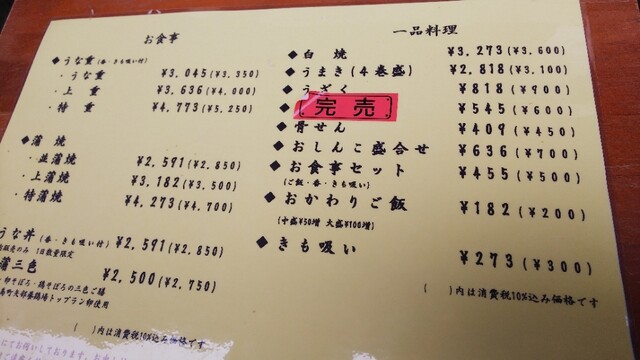 お食事
◆うな重(香・きも吸い付)
・うな重 ¥3,045(¥3,350)
・上重 ¥3,636(¥4,000)
・特重 ¥4,773(¥5,250)
◆蒲焼
・並蒲焼 ¥2,591(¥2,850)
・上蒲焼 ¥3,182(¥3,500)
・特蒲焼 ¥4,273(¥4,700)
うな丼(香・きも吸い付) ¥2,591(¥2,850)
販売のみ 1日数量限定
蒲三色 ¥2,500(¥2,750)
・卵そぼろ・鶏そぼろの三色ご膳
トップラン卵使用
( )内は消費税10%込み価格です
一品料理
◆白焼 ¥3,273(¥3,600)
◆うまき(4巻盛) ¥2,818(¥3,100)
◆うざく ¥818(¥900)
◆ 完売 ¥545(¥600)
◆骨せん ¥409(¥450)
◆おしんこ盛合せ ¥636(¥700)
◆お食事セット ¥455(¥500)
(ご飯・香・きも吸い)
◆おかわりご飯 ¥182(¥200)
(中盛¥50増 大盛¥100増)
◆きも吸い ¥273(¥300)
( )内は消費税10%込み価格です